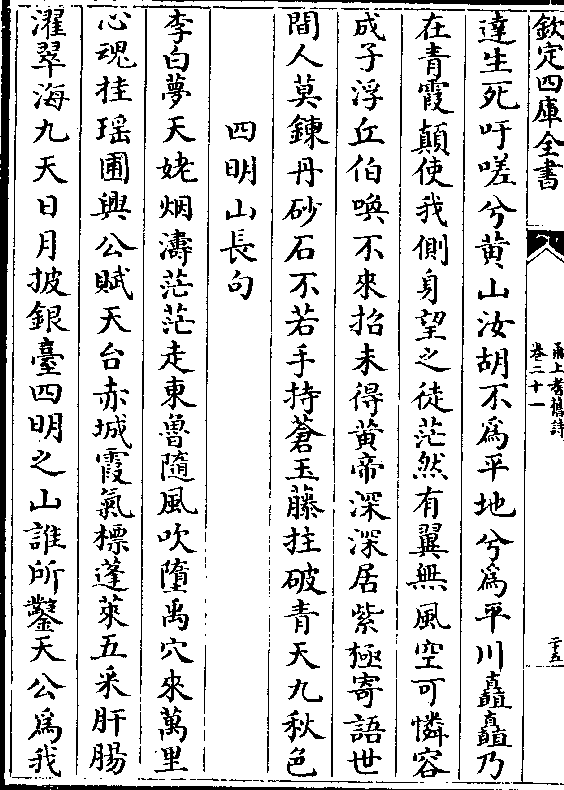 欽定四庫全書
甬上耆舊詩
卷二十一
二十五
達生死吁嗟兮黄山汝胡不為平地兮為平川矗矗乃
在青霞顛使我側身望之徒茫然有翼無風空可憐容
成子浮丘伯喚不來招未得黄帝深深居紫極寄語世
間人莫鍊丹砂石不若手持蒼玉藤拄破青天九秋色
四明山長句
李白夢天姥烟濤茫茫走東魯隨風吹墮禹穴來萬里
心魂挂瑶圃興公賦天台赤城霞氣標蓬萊五采肝腸
濯翠海九天日月披銀臺四明之山誰所鑿天公為我